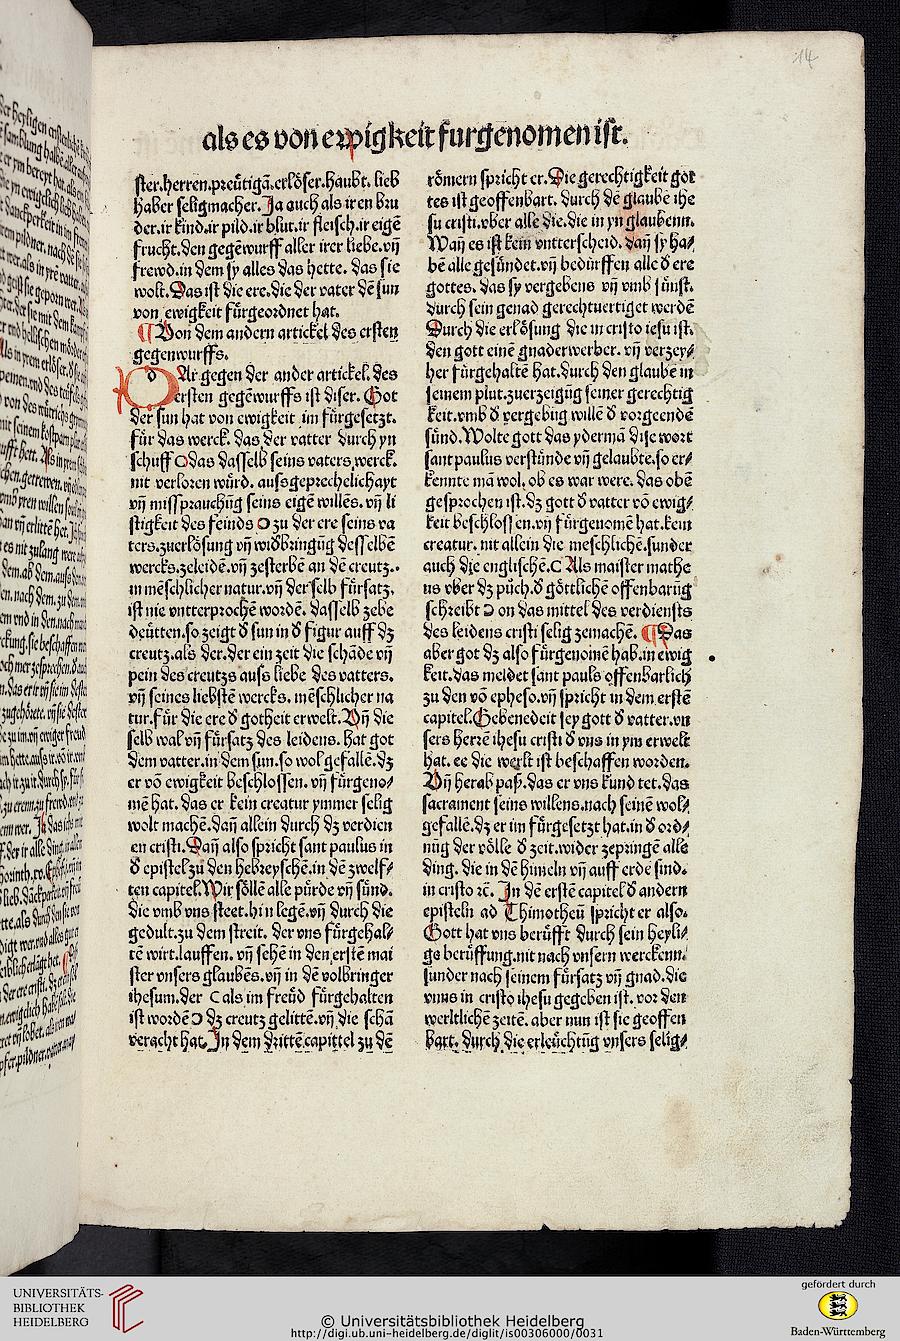 14
als es von ewigkeit furgenomen ist.
ster.herren.preütigā.erlöser.haubt. lieb
haber seligmacher. Ja auch als iren bru
der.ir kind.ir pild.ir blut.ir fleisch.ir eigē
frucht.den gegēwurff aller irer liebe.vñ
frewd.in dem sy alles das hette. das sie
wolt.Das ist die ere.die der vater dē sun
von ewigkeit fürgeordnet hat.
¶ Von dem andern artickel des ersten
gegenwurffs.
DAr gegen der ander artickel des
ersten gegēwurffs ist diser. Got
der sun hat von ewigkeit im fürgesetzt.
für das werck. das der vatter durch yn
schuff Ↄdas dasselb seins vaters werck.
nit verloren würd. aussgeprechelichayt
vñ missprauchūg seins eigē willēs. vñ li
stigkeit des feinds Ↄ zu der ere seins va
ters.zuerlösung vñ widbringūg desselbē
wercks.zeleidē.vñ zesterbē an dē creutz..
in mēschlicher natur.vñ derselb fürsatz.
ist nie vntterprochē wordē. dasselb zebe
deütten.so zeigt d̄ sun in d̄ figur auff dz
creutz.als der.der ein zeit die schāde vñ
pein des creutzs auss liebe des vatters.
vñ seines liebstē wercks. mēschlicher na
tur.für die ere d̄ gotheit erwelt.Vñ die
selb wal vñ fürsatz des leidens. hat got
dem vatter.in dem sun.so wol gefallē.dz
er vō ewigkeit beschlossen. vñ fürgeno⸗
mē hat. das er kein creatur ymmer selig
wolt machē.dañ allein durch dz verdien
en cristi.Dañ also spricht sant paulus in
d̄ epistel zu den hebreyschēn.in dē zwelf⸗
ten capitel.Wir söllē alle pürde vñ sünd.
die vmb vns steet.hin legē.vñ durch die
gedult.zu dem streit. der vns fürgehal⸗
tē wirt.lauffen. vñ sehē in den erstē mai
ster vnsers glaubēs.vñ in dē volbringer
ihesum.der C als im freüd fürgehalten
ist wordēↃ dz creutz gelittē.vñ die schā
veracht hat. In dem dritte.capittel zu dē
römern spricht er.Die gerechtigkeit got
tes ist geoffenbart. durch dē glaube ihe
su cristi.vber alle die.die in yn glaubenn.
Wañ es ist kein vntterscheid. dañ sy ha⸗
bē alle gesündet.vñ bedürffen alle d̄ ere
gottes. das sy vergebens vñ vmb sünst.
durch sein genad gerechtuertiget werdē
Durch die erlösung die in cristo iesu ist.
den gott einē gnaderwerber. vñ verzey⸗
her fürgehaltē hat.durch den glaubē in
seinem plut.zuerzeigūg seiner gerechtig
keit.vmb d̄ vergebūg willē d̄ vorgeendē
sünd.Wolte gott das ydermā dise wort
sant paulus verstünde vñ gelaubte.so er⸗
kennte mā wol. ob es war were. das obē
gesprochen ist.dz gott d̄ vatter vō ewig⸗
keit beschlossen.vñ fürgenomē hat.kein
creatur. nit allein die meschlichē.sunder
auch die englischē.C Als maister mathe
us vber dz püch.d̄ göttlichē offenbarūg
schreibt Ↄ on das mittel des verdiensts
des leidens cristi selig zemachē. ¶ Das
aber got dz also fürgenomē hab.in ewig
keit.das meldet sant pauls offenbarlich
zu den vō epheso.vñ spricht in dem erstē
capitel.Gebenedeit sey gott d̄ vatter.vn
sers herzē ihesu cristi d̄ vns in ym erwelt
hat. ee die werlt ist beschaffen worden.
Vñ herab paß.das er vns kund tet.das
sacrament seins willens.nach seinē wol⸗
gefallē.dz er im fürgesetzt hat.in d̄ ord⸗
nūg der völle d̄ zeit.wider zepringē alle
ding. die in dē himeln vñ auff erde sind.
in cristo ꝛc̄. In dē erstē capitel d̄ andern
episteln ad Thimotheū spricht er also.
Gott hat vns berüfft durch sein heyli⸗
ge berüffung.nit nach vnsern werckenn.
sunder nach seinem fürsatz vñ gnad.die
vnns in cristo ihesu gegeben ist. vor den
werltlichē zeitē. aber nun ist sie geoffen
bart. durch die erleüchtūg vnsers selig⸗
UNIVERSITÄTS-
BIBLIOTHEK
HEIDELBERG
© Universitätsbibliothek Heidelberg
http://digi.ub.uni-heidelberg.de/diglit/is00306000/0031
gefördert durch
Baden-Württemberg